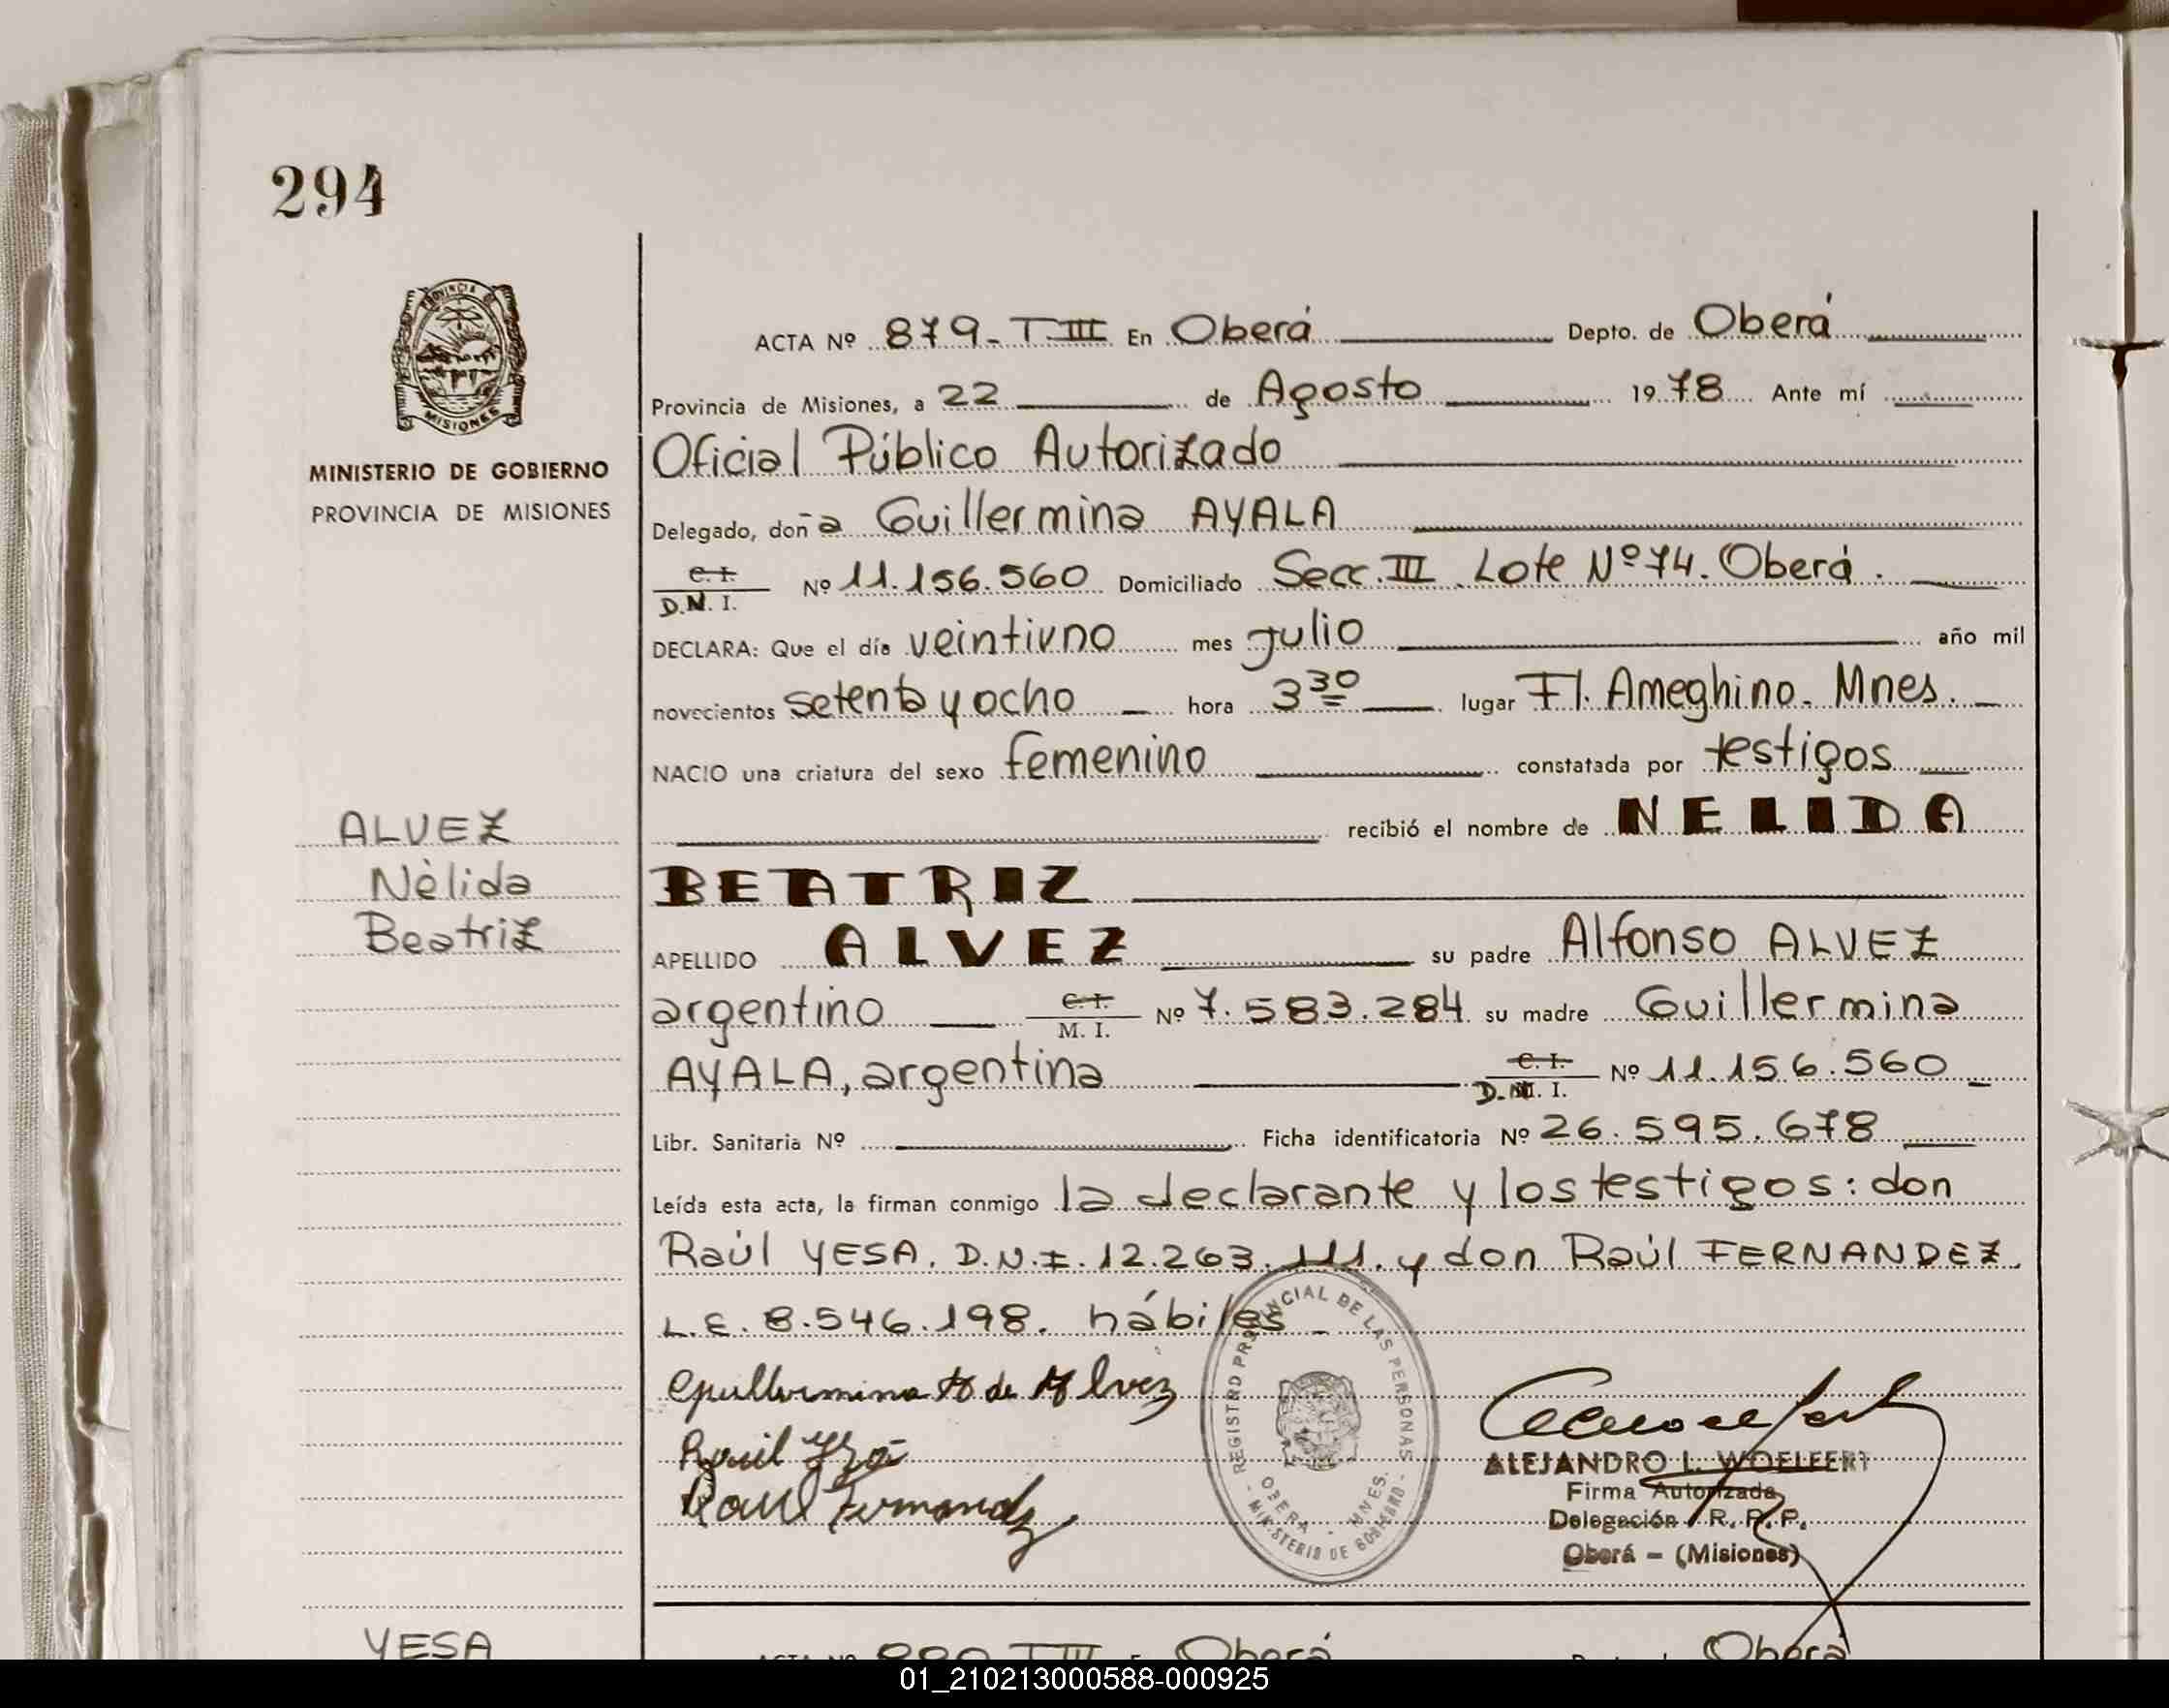 294
PROVINCIA DE
MISIONES
MINISTERIO DE GOBIERNO
PROVINCIA DE MISIONES
ALVEZ
Nèlida
Beatriz
ACTA Nº 879-TIII En Oberá Depto. de Oberá
Provincia de Misiones, a 22 de Agosto 1978 Ante mí
Oficial Público Autorizado
Delegado, doña Guillermina AYALA
C. I.
D.N. I. Nº 11.156.560 Domiciliado Secc. III Lote Nº 74. Oberá.
DECLARA: Que el día veintiuno mes Julio año mil
novecientos setenta y ocho hora 3 30 lugar Fl. Ameghino. Mnes.
NACIO una criatura del sexo femenino constatada por testigos
recibió el nombre de NELIDA
BEATRIZ
APELLIDO ALVEZ su padre Alfonso ALVEZ
argentino C. I. M. I. Nº 7.583.284 su madre Guillermina
AYALA, argentina C. I. D.N. I. Nº 11.156.560
Libr. Sanitaria Nº Ficha identificatoria Nº 26.595.678
Leída esta acta, la firman conmigo la declarante y los testigos: don
Raúl YESA. D.N.I. 12.263.111. y don Raúl FERNANDEZ.
L.E. 8.546.198. hábiles
Guillermina A de Alvez
Raul
Raul Fernandez
REGISTRO PROVINCIAL DE LAS PERSONAS
OBERA - MNES.
- MINISTERIO DE GOBIERNO -
ALEJANDRO L. WOELFERT
Firma Autorizada
Delegación R. P. P.
Oberá - (Misiones)
YESA
ACTA Nº 880 TIII En Oberá Depto. de Oberá
01_210213000588-000925